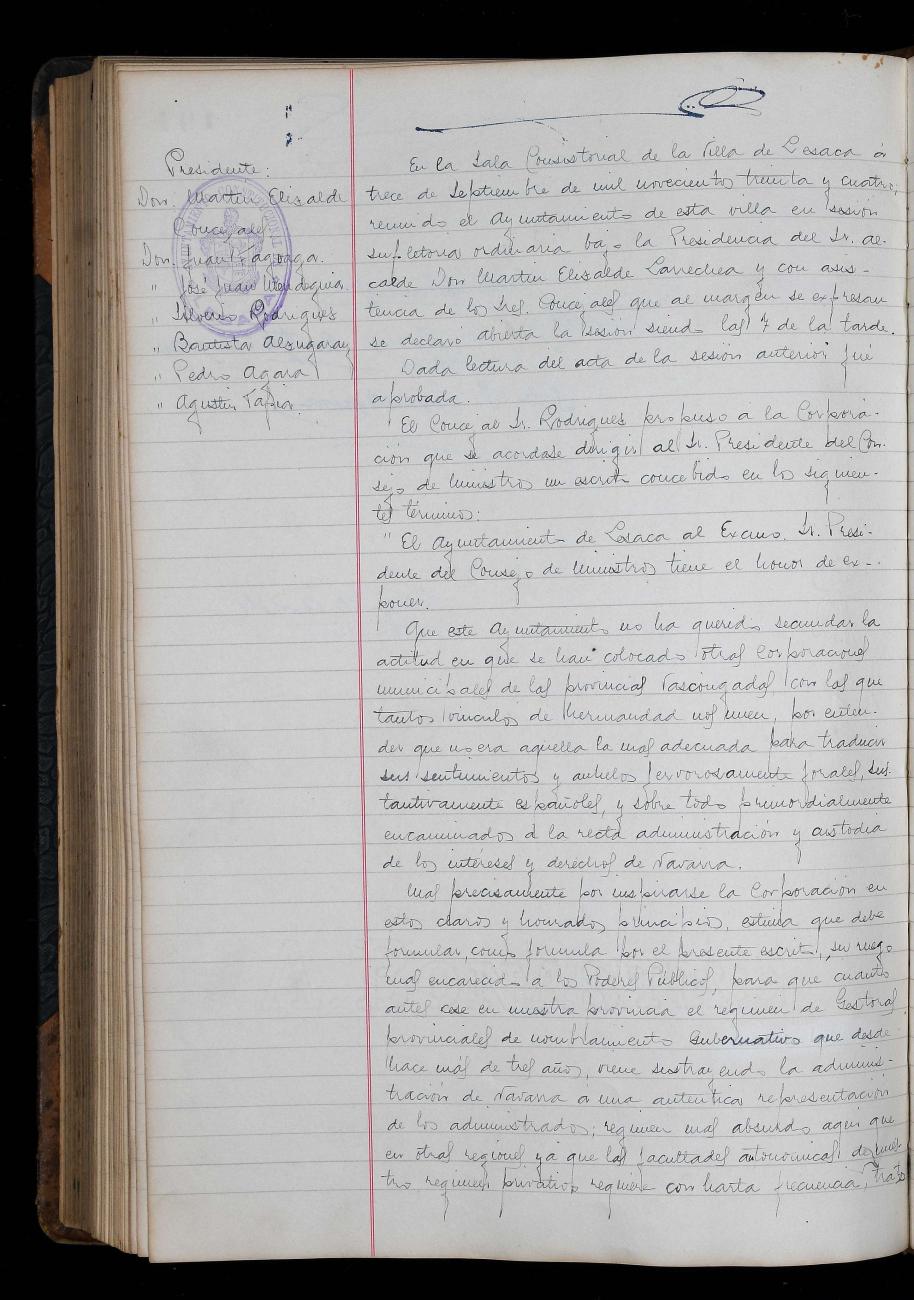 Presidente:
Don Martin Elizalde
Concejales
Don Juan Fagoaga.
" José Juan Mendiguia
" Silverio Rodrigues
" Bautista Alzugaray
" Pedro Agara
" Agustin Tapia.
En la Sala Consistorial de la Villa de Lesaca á
trece de Septiembre de mil novecientos treinta y cuatro,
reunido el Ayuntamiento de esta villa en sesión
supletoria ordinaria bajo la Presidencia del Sr. al-
calde Don Martin Elisalde Larrechea y con asis-
tencia de los Sres. Concejales que al margen se expresan
se declaro abierta la sesión siendo las 7 de la tarde.
Dada lectura del acta de la sesión anterior fué
aprobada.
El Concejal Sr. Rodrigues propuso a la Corpora-
ción que se acordase dirigir al Sr. Presidente del Con-
sejo de Ministros un escrito concebido en los siguien-
tes términos:
" El Ayuntamiento de Lesaca al Excmo. Sr. Presi-
dente del Consejo de Ministros tiene el honor de ex-
poner.
Que este Ayuntamiento no ha querido secundar la
actitud en que se han colocado otras Corporaciones
municipales de las provincias Vascongadas, con las que
tantos vinculos de hermandad nos unen, por enten-
der que no era aquella la mas adecuada para traducir
sus sentimientos y anhelos fervorosamente forales, sus-
tantivamente españoles, y sobre todo primordialmente
encaminados á la recta administración y custodia
de los intéreses y derechos de Navarra.
Mas precisamente por inspirarse la Corporación en
estos claros y honrados principios, estima que debe
formular, como formula por el presente escrito, su ruego
mas encarecido á los Poderes Públicos, para que cuanto
antes cese en nuestra provincia el regimen de Gestoras
provinciales de nombramiento Gubernativo que desde
hace más de tres años, viene sustrayendo la adminis-
tración de Navarra a una autentica representación
de los administrados; regimen mas absurdo aqui que
en otras regiones ya que las facultades autonomicas de nues-
tro regimen privativo requiere con harta frecuencia, trato